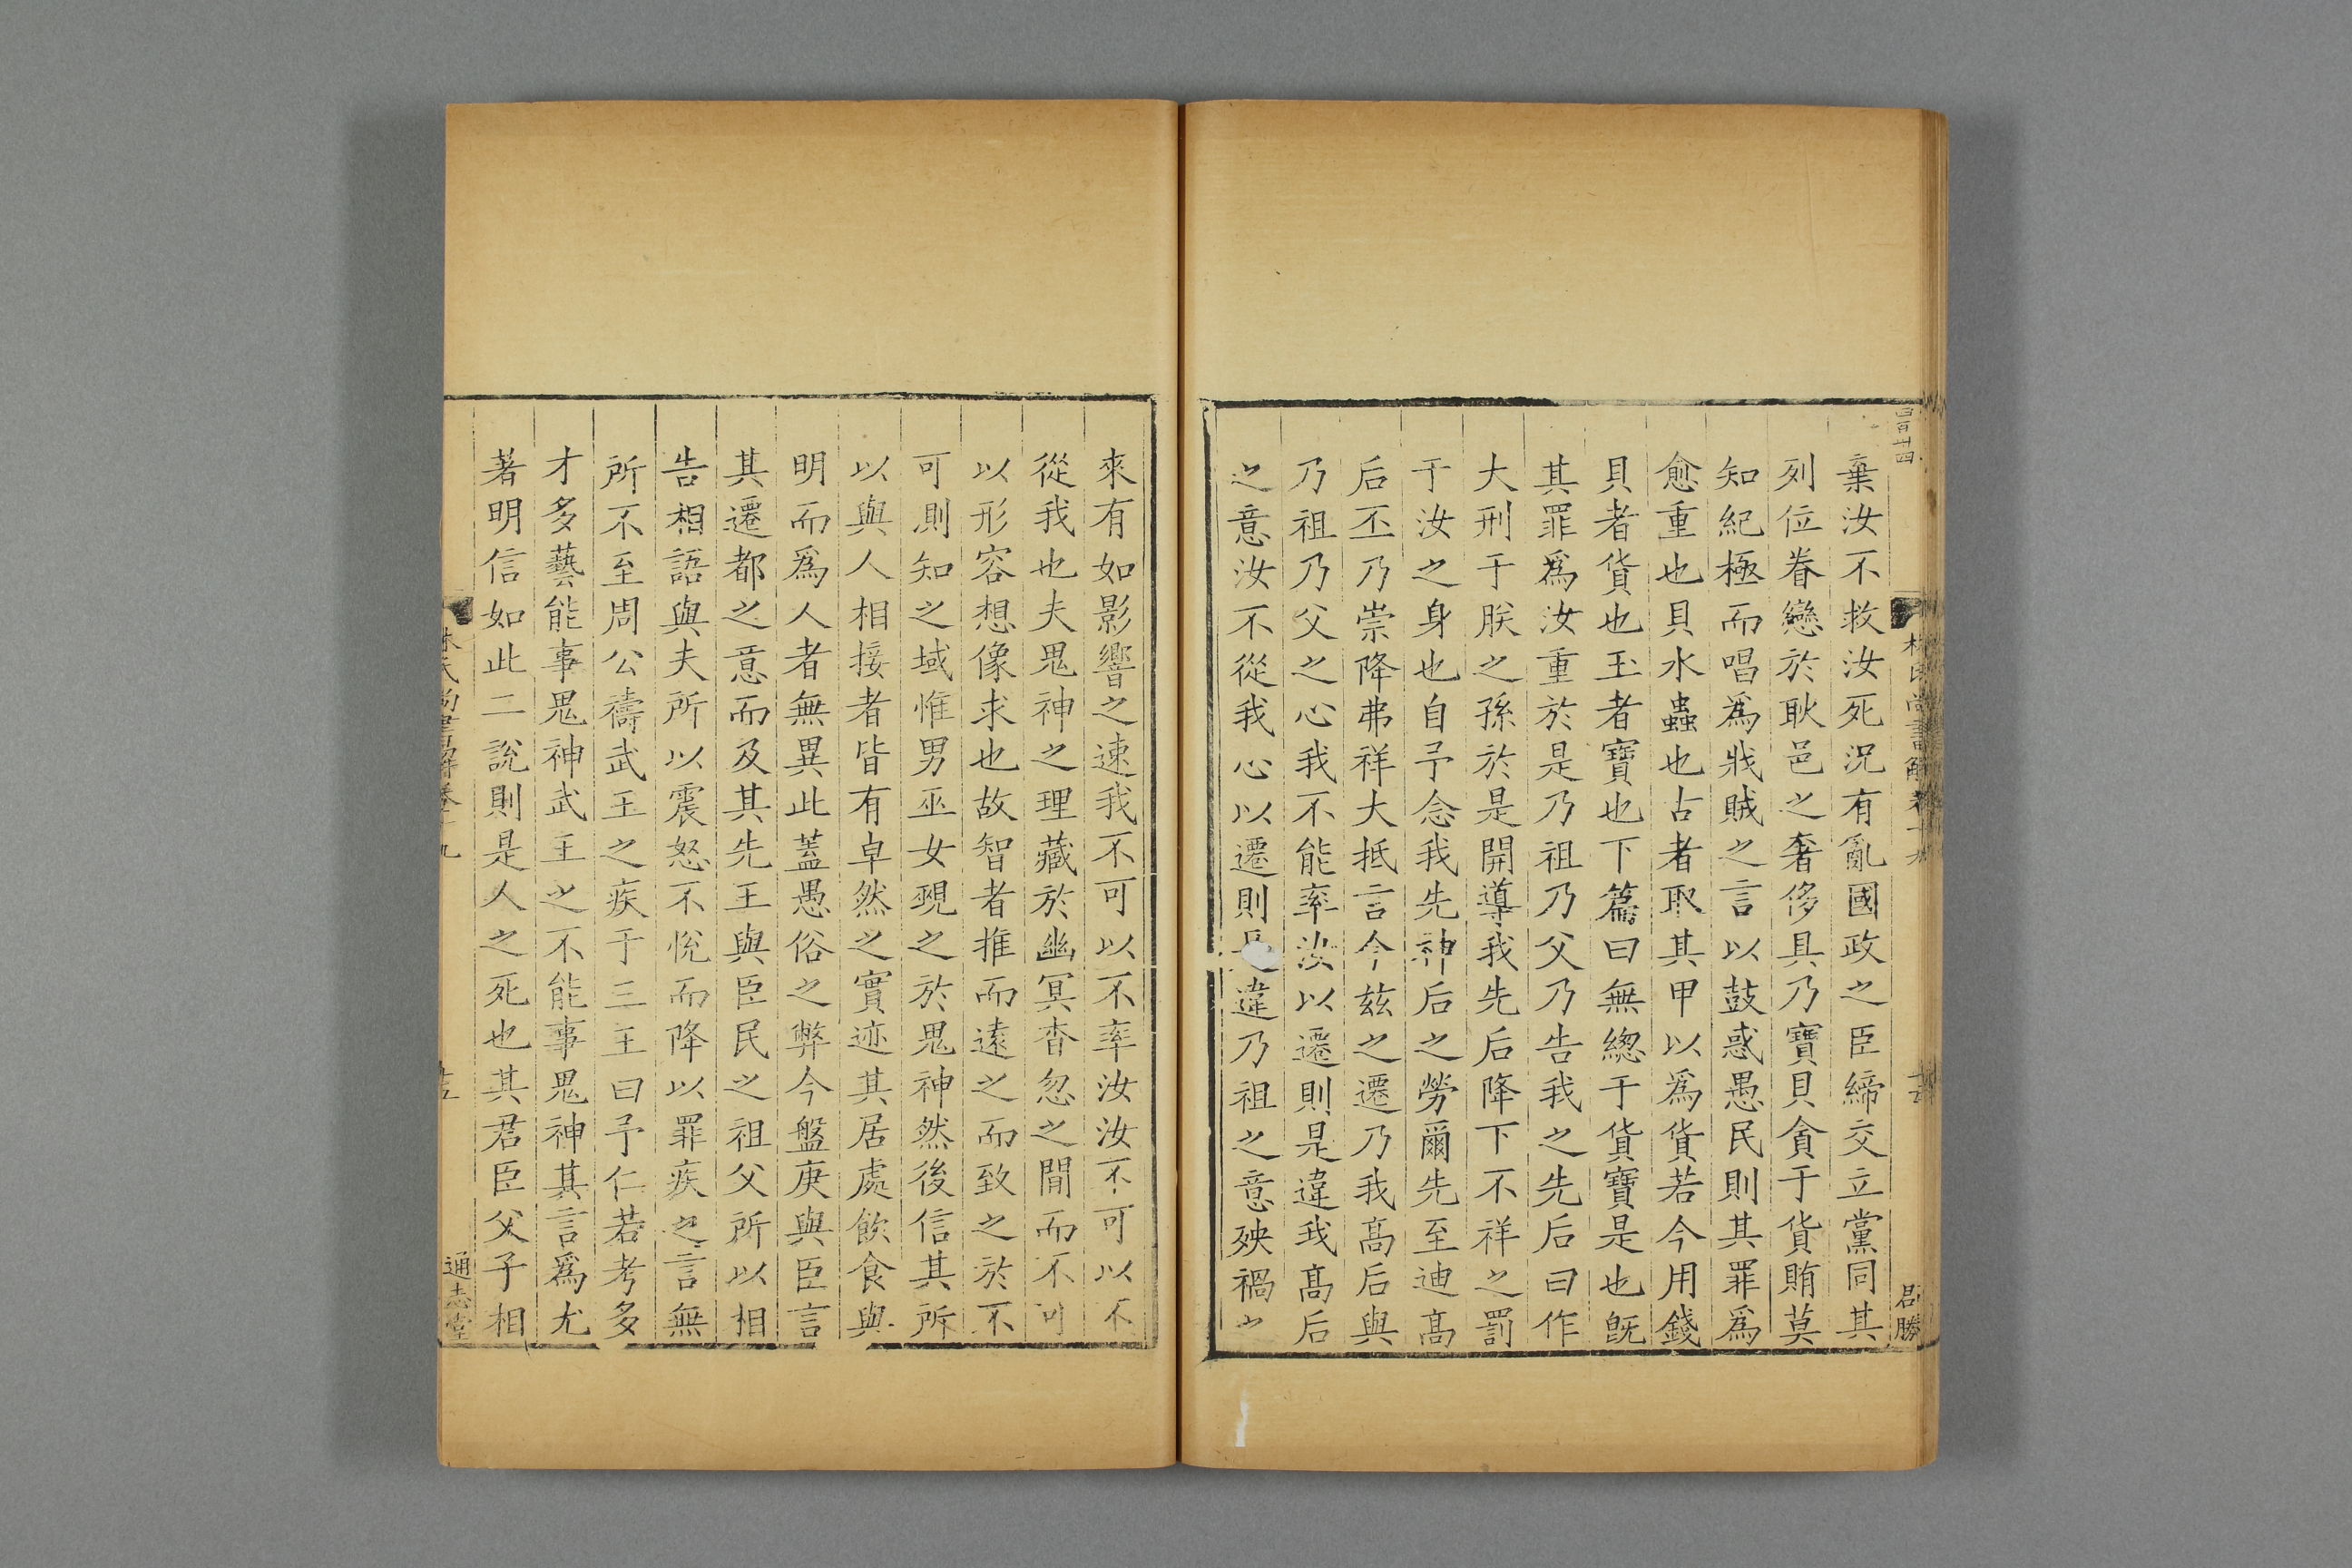 棄汝不救汝死況有亂國政之臣締交立黨同其
列位眷戀於耿邑之奢侈具乃寶貝貪于貨賄莫
知紀極而唱爲戕賊之言以鼓惑愚民則其罪爲
愈重也貝水蟲也古者取其甲以爲貨若今用錢
貝者貨也玉者寶也下篇曰無緫于貨寶是也旣
其罪爲汝重於是乃祖乃父乃告我之先后曰作
大刑于朕之孫於是開導我先后降下不祥之罰
于汝之身也自予念我先神后之勞爾先至迪高
后丕乃崇降弗祥大抵言今兹之遷乃我高后與
乃祖乃父之心我不能率汝以遷則是違我高后
之意汝不從我心以遷則違乃祖之意殃禍之
來有如影響之速我不可以不率汝汝不可以不
從我也夫鬼神之理藏於幽冥杳忽之閒而不可
以形容想像求也故智者推而遠之而致之於不
可則知之域惟男巫女覡之於鬼神然後信其所
以與人相接者皆有卓然之實迹其居處飲食與
明而爲人者無異此蓋愚俗之弊今盤庚與臣言
其遷都之意而及其先王與臣民之祖父所以相
告相語與夫所以震怒不悅而降以罪疾之言無
所不至周公禱武王之疾于三王曰予仁若考多
才多藝能事鬼神武王之不能事鬼神其言爲尤
著明信如此二說則是人之死也其君臣父子相
林氏尚書解卷十九
通志堂